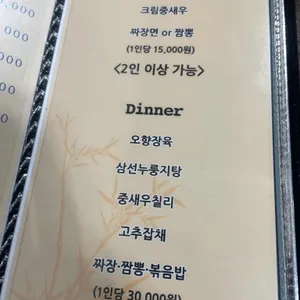 ,000
000
000
000
크림중새우
짜장면 or 짬뽕
(1인당 15,000원)
<2인 이상 가능>
Dinner
오향장육
삼선누룽지탕
중새우칠리
고추잡채
짜장·짬뽕·볶음밥
(1인당 30,000원)